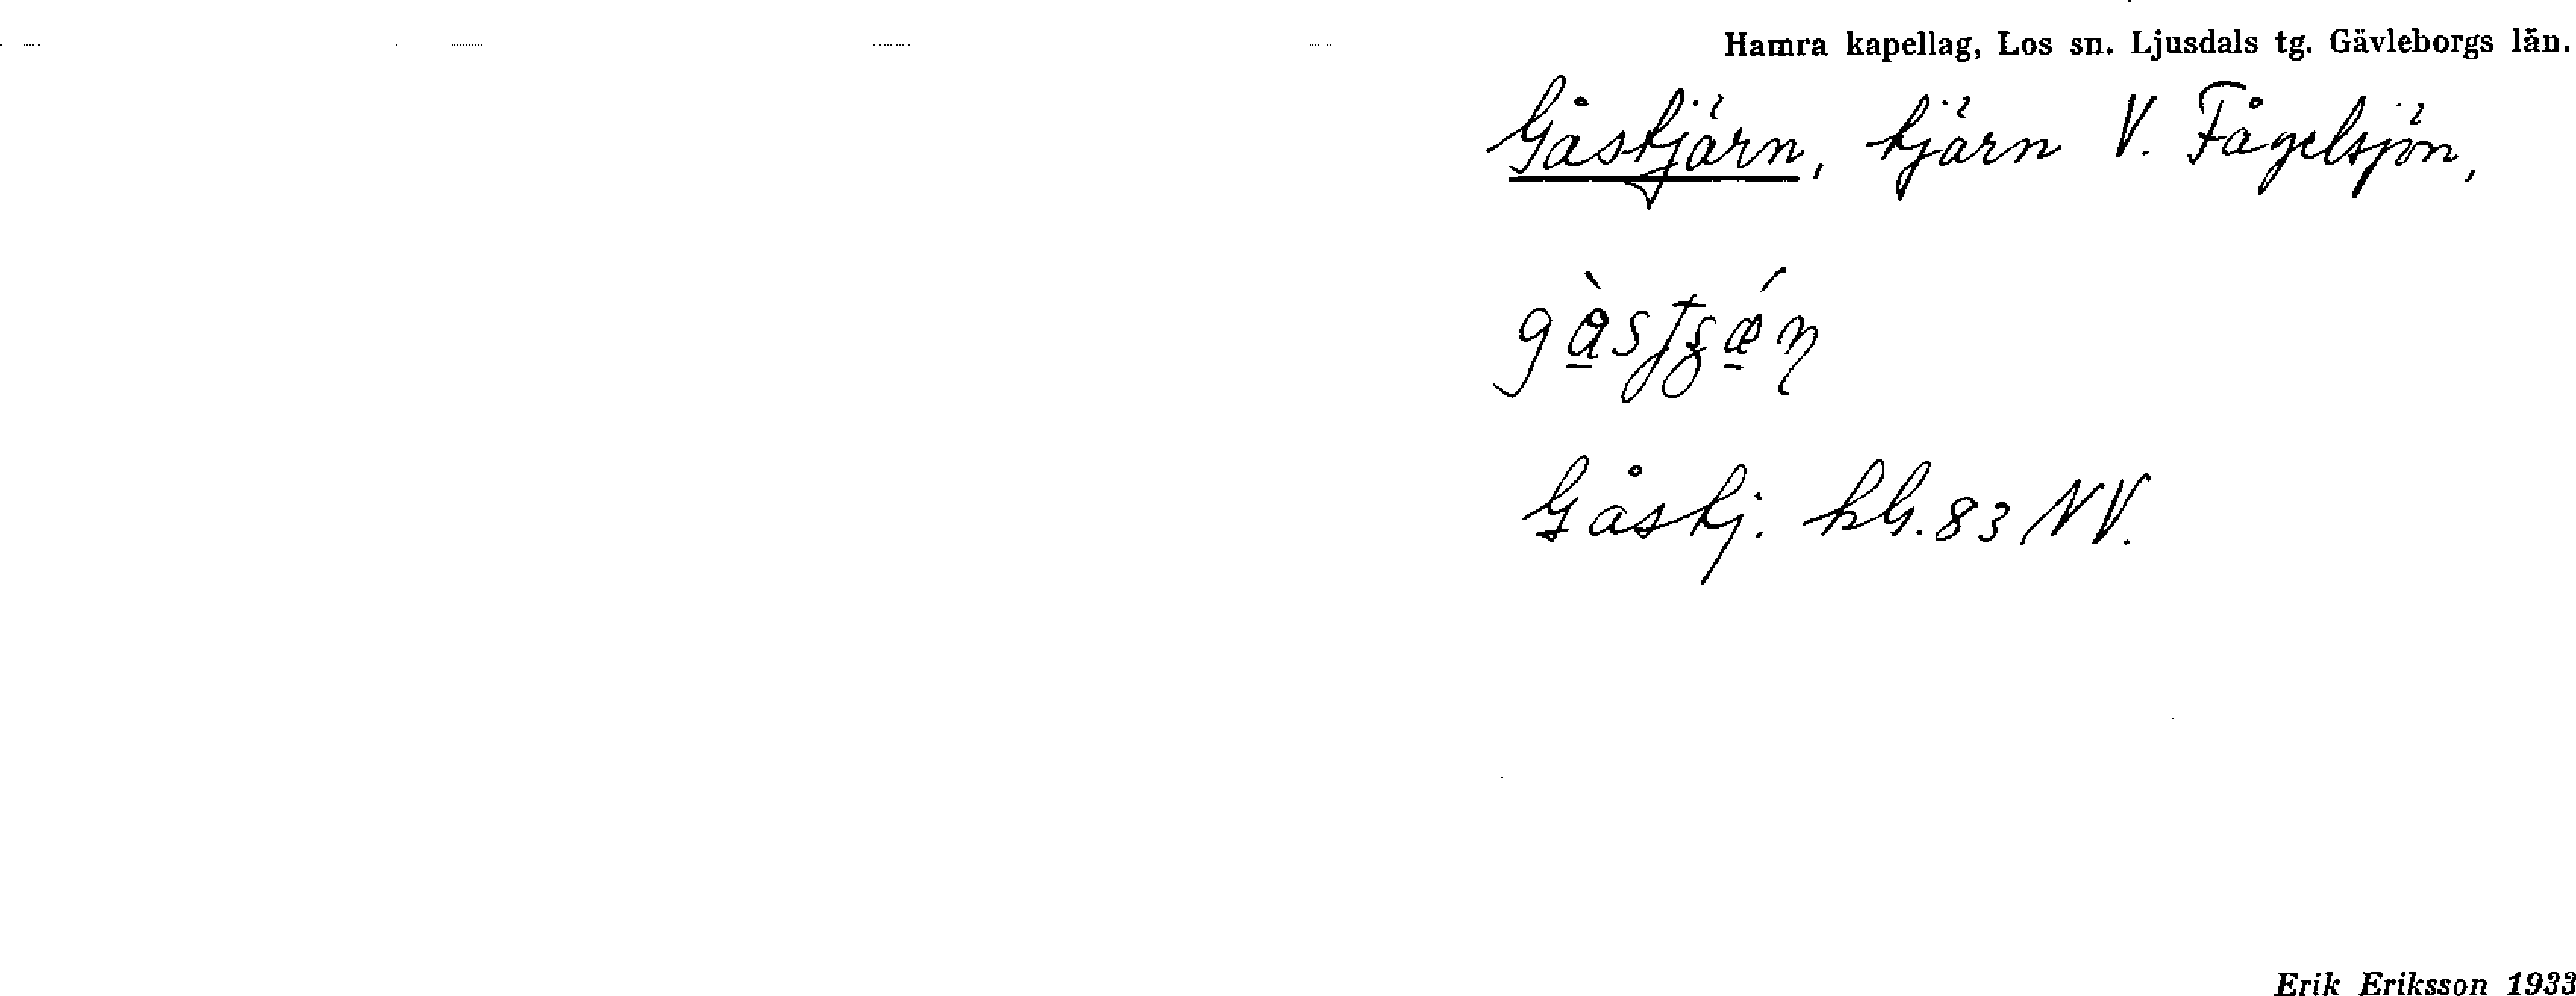 Hamra kapellag, Los sn. Ljusdals tg. Gävleborgs län.
Gåstjärn, tjärn V. Fågelsjön,
Gåstj. kbl. 83 NV.
Erik Eriksson 1933